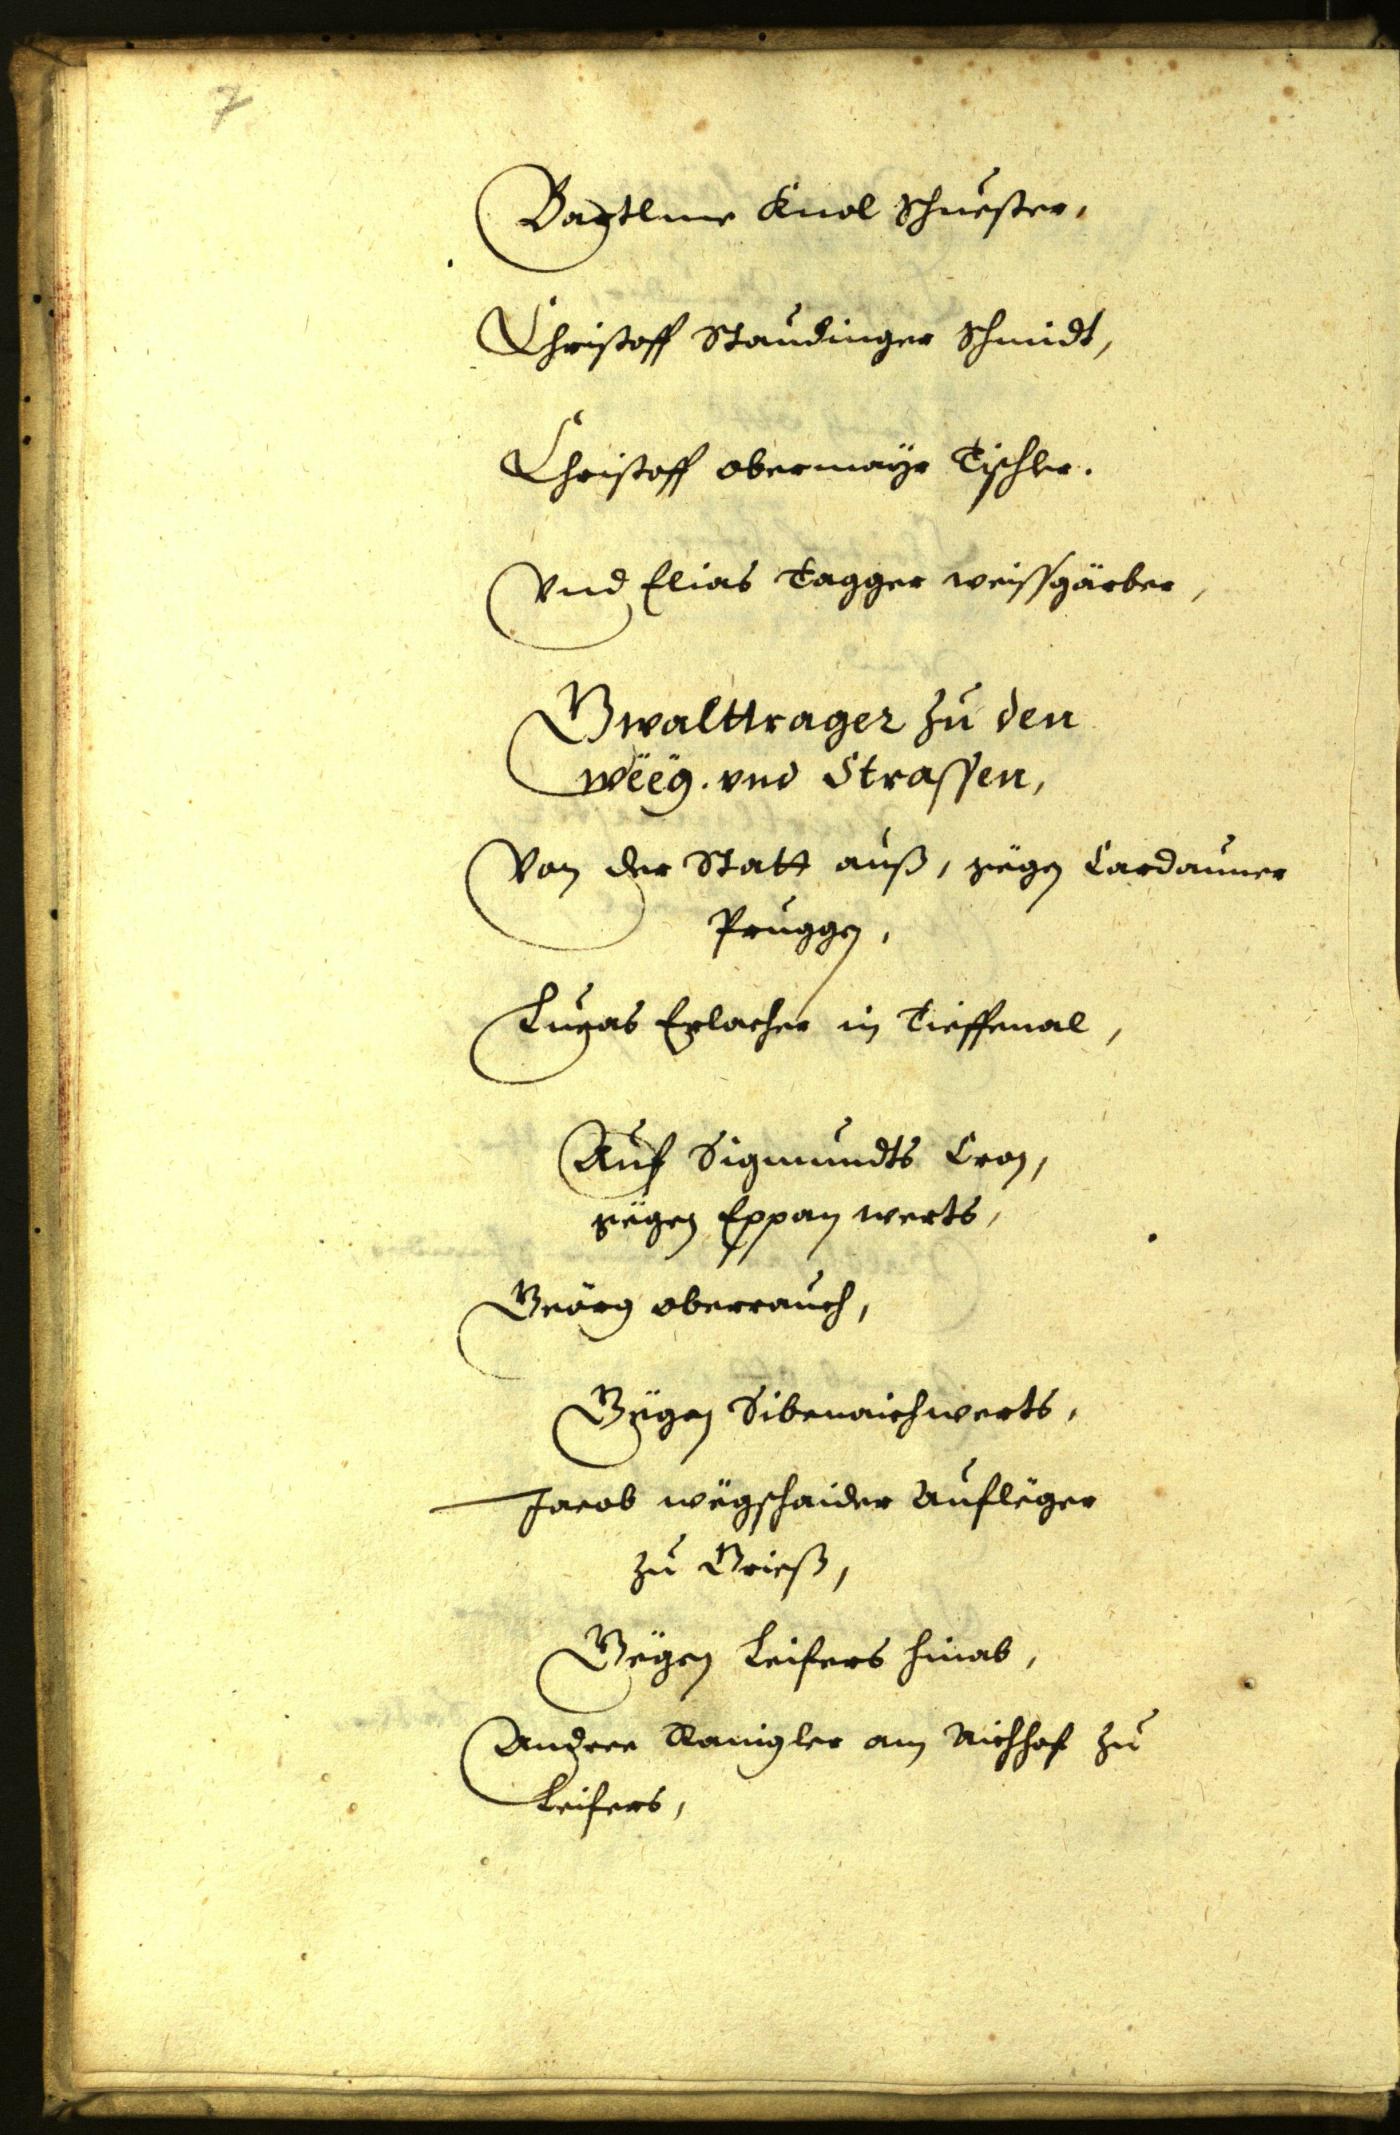 7
Bartlme Knol Schuester,
Christoff Staudinger Schmidt,
Christoff obermayr Tischler.
Vnd Elias Tagger weissgärber,
Gwalttrager zu den
weëg. vnd Strassen,
Von der Statt auß, gëgen Cardauner
Pruggen,
Lucas Erlacher in Tieffenal,
Auf Sigmundts Cron,
gëgen Eppan werts,
Geörg oberrauch,
Gëgen Sibenaichwerts,
Jacob wëgschaider Auflëger
zu Grieß,
Gëgen Leifers hinab,
Andree Ranigler am Aichhof zu
Leifers,